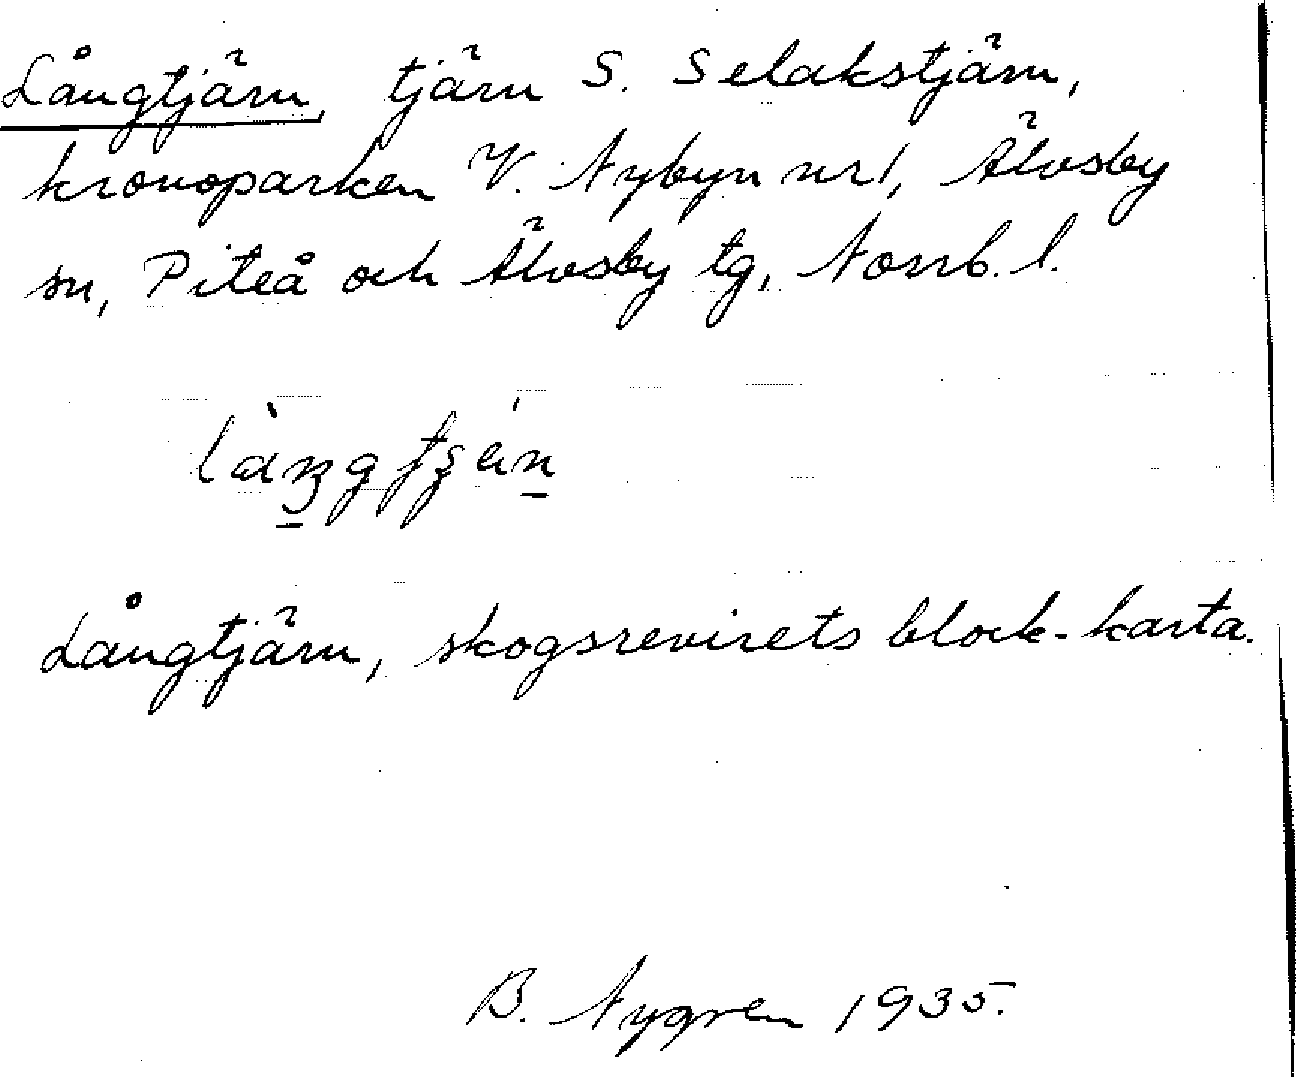 Långtjärn, tjärn S. Selakstjärn,
kronoparken V. Nybyn nr 1, Älvsby
sn, Piteå och Älvsby tg, Norrb. l.
Långtjärn, skogsrevirets block-karta.
B. Nygren 1935.